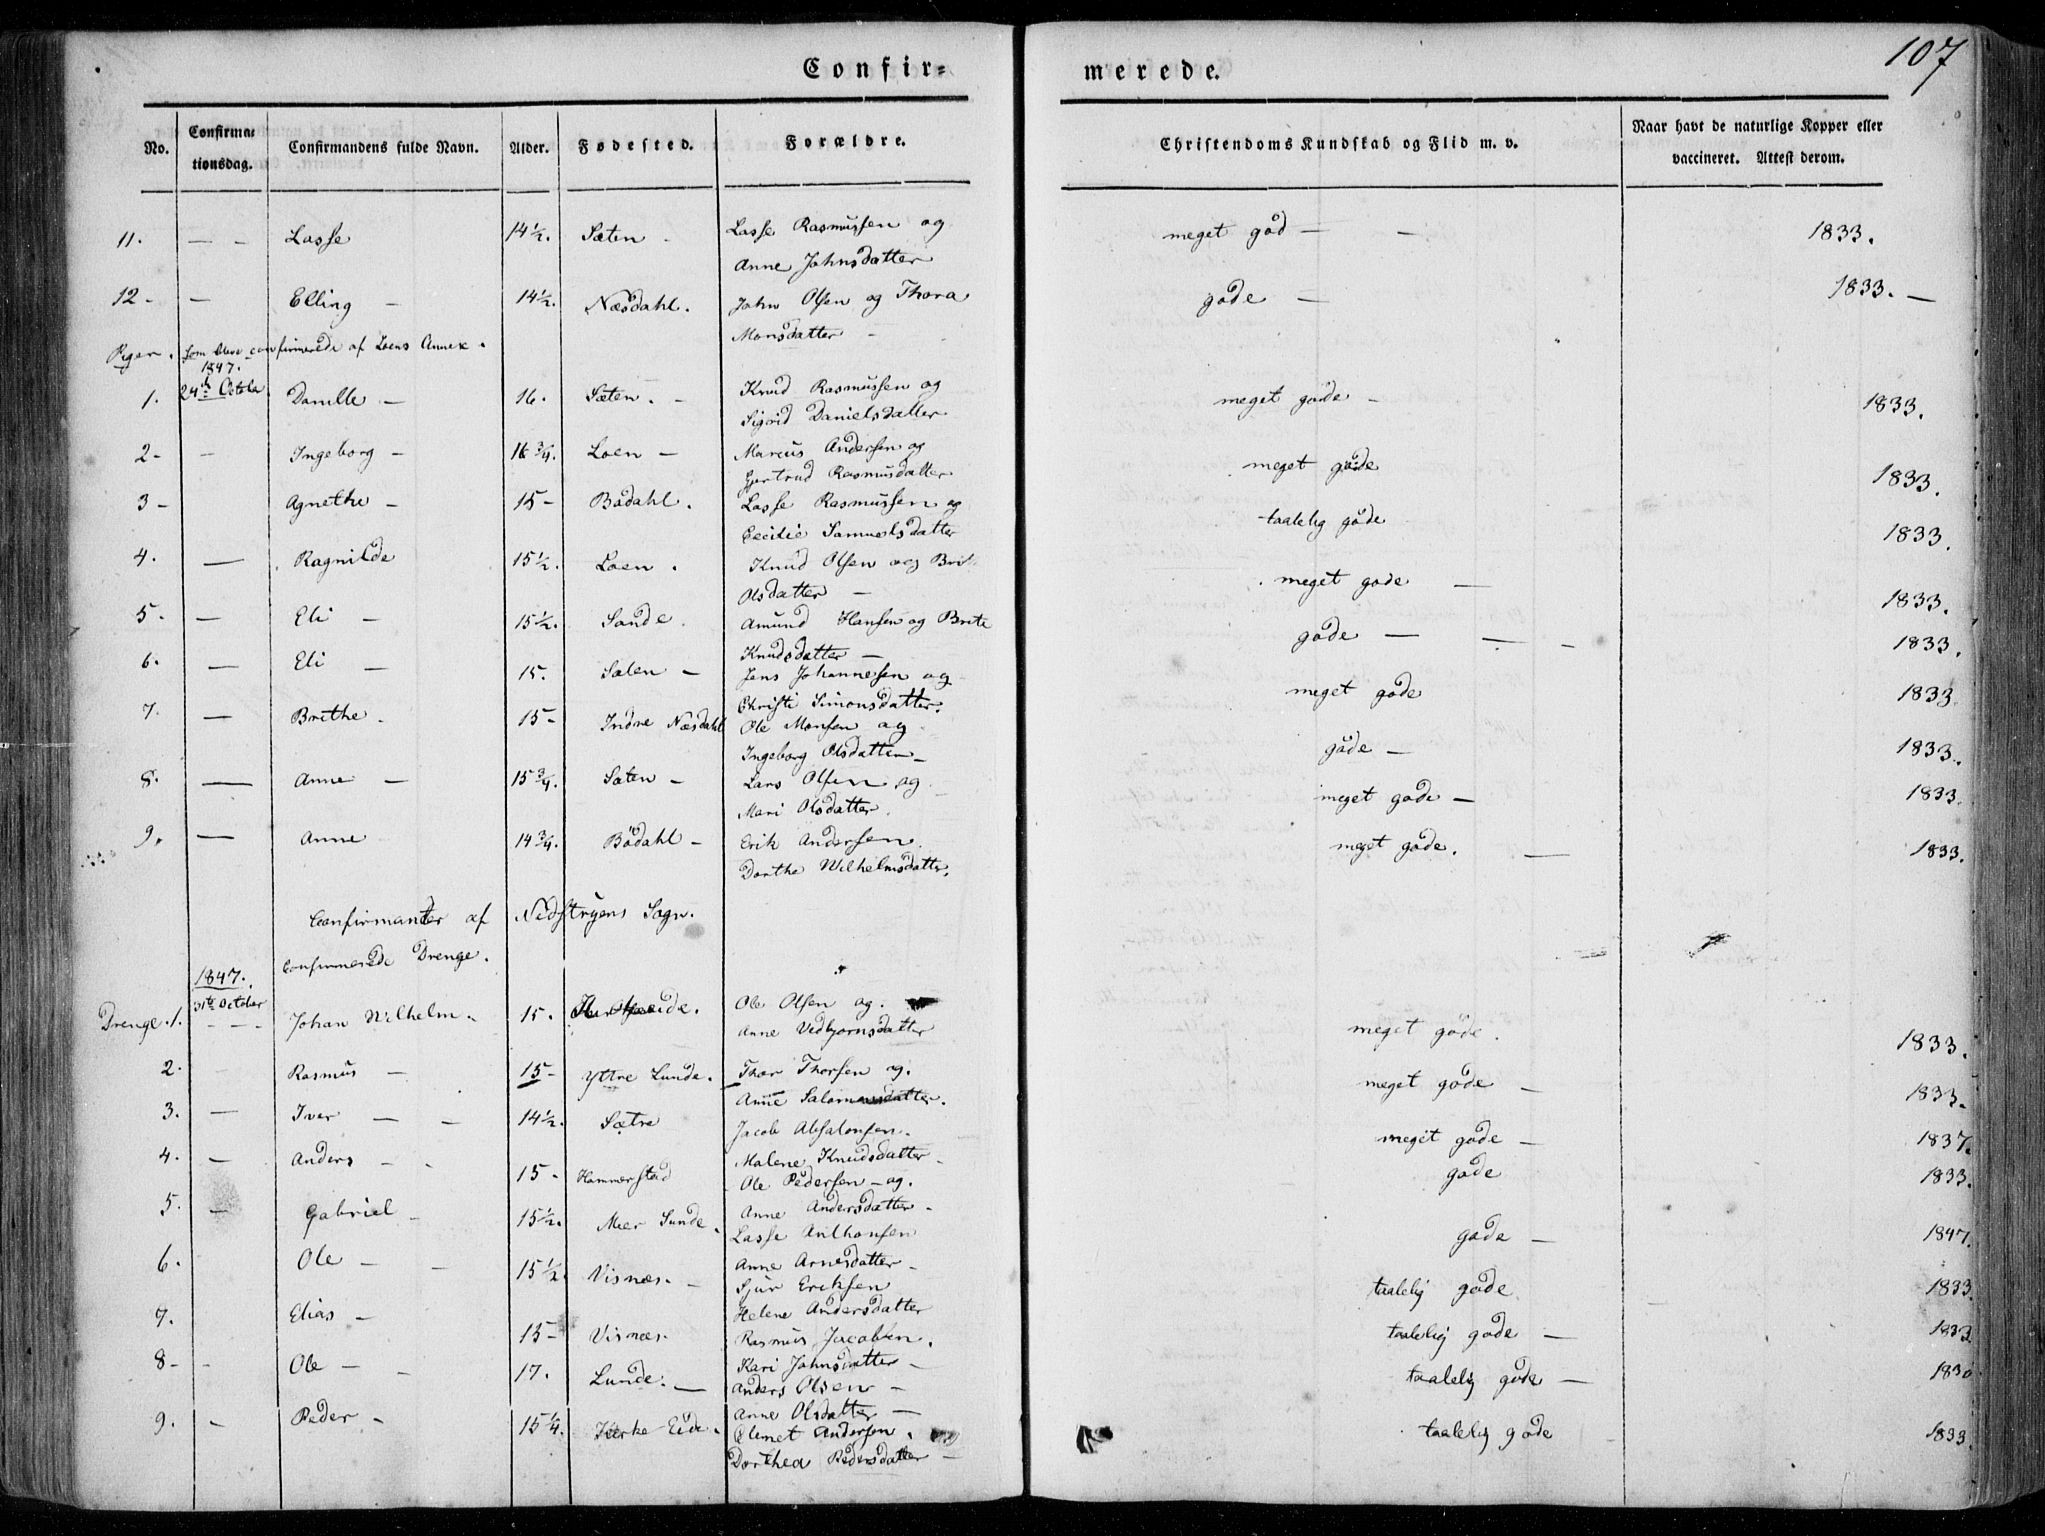 107
Confir= merede.
No. Confirmationsdag. Confirmandens fulde Navn. Alder. Fødested. Forældre. Christendoms Kundskab og Flid m. v. Naar havt de naturlige Kopper eller vaccineret. Attest derom.
11. — — Lasse 14½. Sæten - Lasse Rasmussen og meget god — — 1833.
Anne Johnsdatter
12 - — Elling — 14½. Næsdahl. John Olsen og Thora gode — 1833. —
Monsdatter —
Piger. som bleve confirmerede af Loens Annex.
1847.
1. 24de Octobr Danille — 16. Sæten. - Knud Rasmussen og meget gode - 1833.
Sigrid Danielsdatter
2 - - Ingeborg - 16¾. Loen — Marcus Andersen og meget gode 1833.
Gjertrud Rasmusdatter
3 - Agnethe — 15 - Bødahl. Lasse Rasmussen og taalelig gode 1833.
Cecilie Samuelsdatter
4. — Ragnilde 15½. Loen. Knud Olsen og Brit meget gode — 1833.
Olsdatter —
5. — Eli — 15½. Sande. Amund Hansen og Brite gode — — - 1833.
Knudsdatter —
6. — Eli — 15. Sæten — Jens Johannesen og meget gode 1833
Christi Simonsdatter.
7. — Brithe. 15 - Indre Næsdahl Ole Monsen og gode — 1833.
Ingeborg Olsdatter —
8. — Anne — 15¾. Sæten — Lars Olsen og meget gode — 1833.
Mari Olsdatter.
9. — Anne 14¾. Bødahl — Erik Andersen. meget gode. — 1833.
Dorthe Wilhelmsdatter.
Confirmanter af Nedstryens Sogn.
Confirmerede Drenge.
1847.
31te October
Drenge. 1. - - - Johan Wilhelm. 15. Ole Olsen og. meget gode. 1833.
Anne Vedbjørnsdatter
2. Rasmus — 15 - Yttre Lunde. Thor Thorsen og. meget gode — 1833.
Anne Salomonsdatter.
3. — Iver — - 14½. Sætre Jacob Absalonsen. meget gode — 1837.
Malene Knudsdatter -
4. — Anders - - 15 - Hammerstad Ole Pedersen — og. gode 1833.
Anne Andersdatter -
5. — Gabriel - 15½. Meer Sunde. Lasse Anthonsen gode — 1847.
Anne Arnesdatter -
6. Ole — - 15½. Visnæs. — Sjur Eriksen taalelig gode 1833.
Helene Andersdatter
7. Elias — 15 - Visnæs. Rasmus Jacobsen. taalelig gode — 1833.
Kari Johnsdatter —
8 - - Ole — - 17. Lunde. — Anders Olsen — taalelig gode — 1830
Anne Olsdatter —
9. - Peder - 15¼. Kirke Eide. Clemet Andersen. taalelig gode 1833.
Dorthea Pedersdatter —